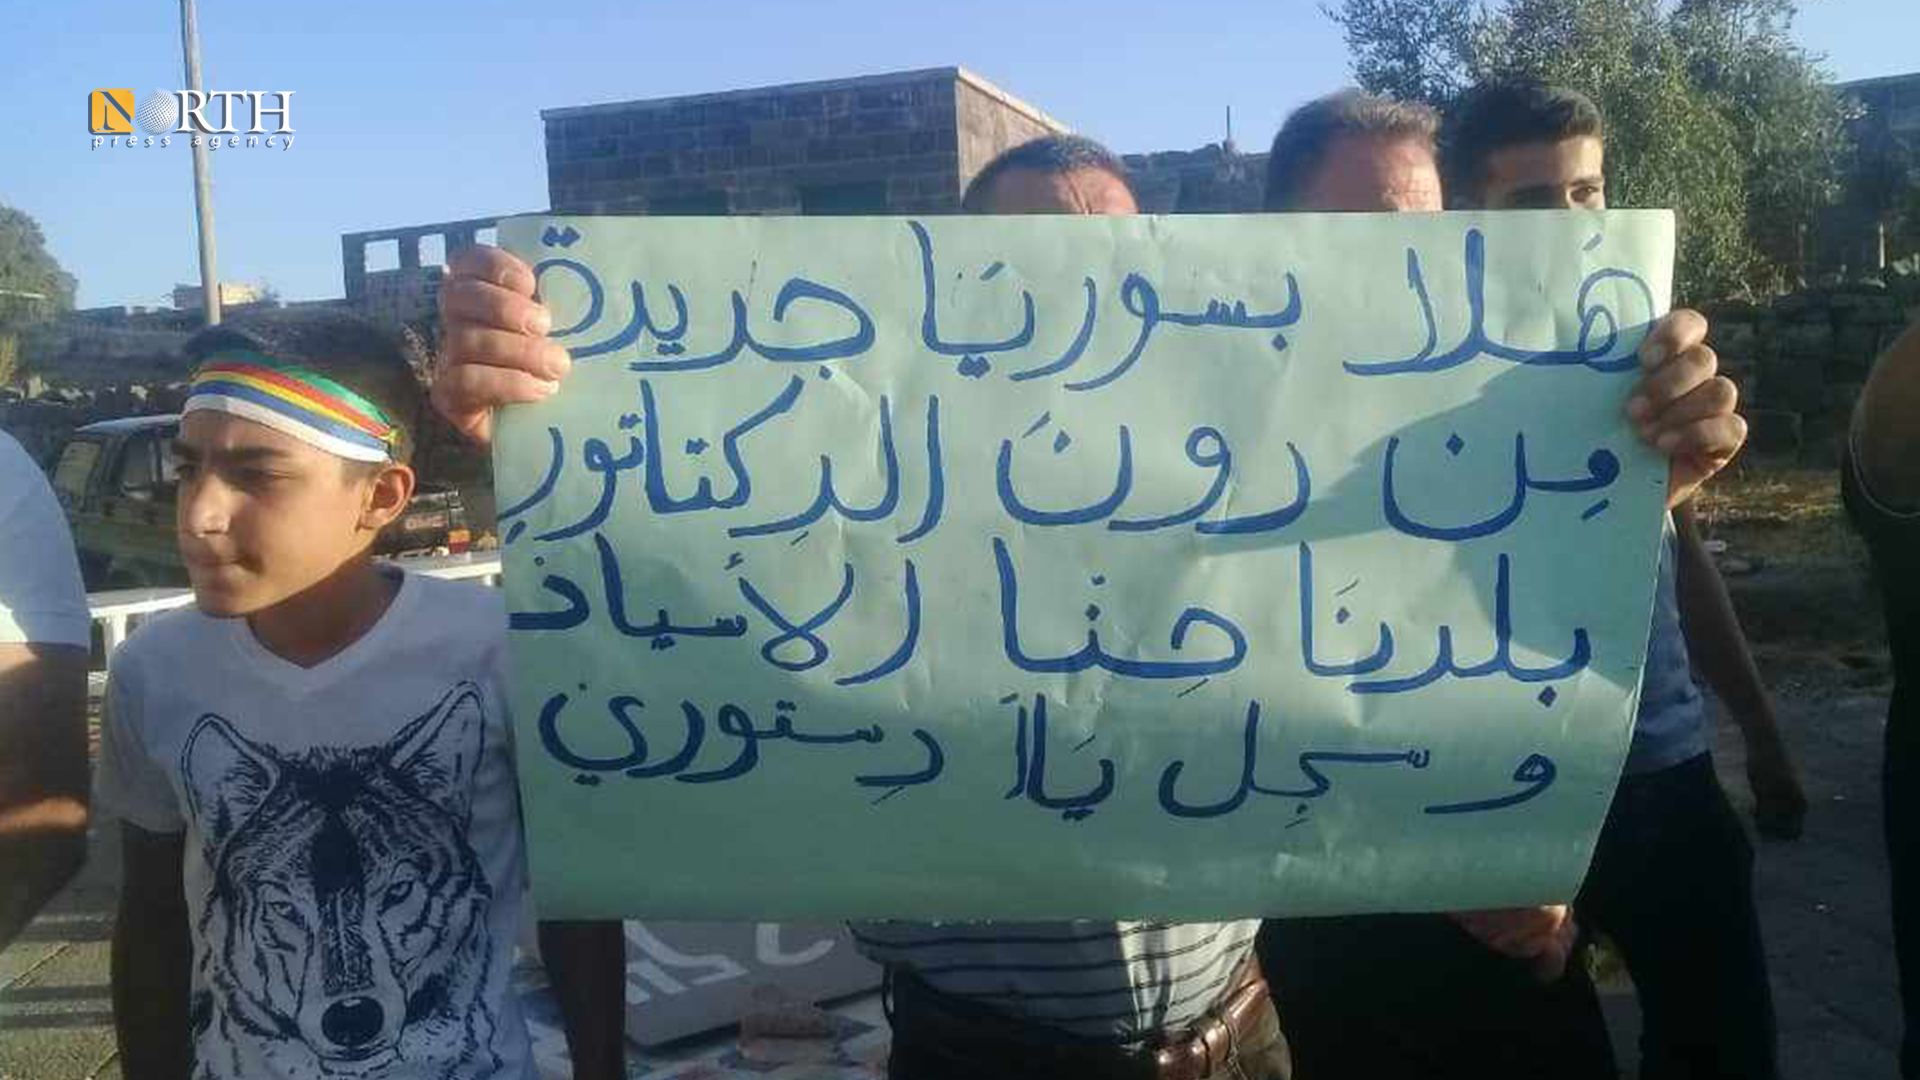 NORTH
press agency
هَلا بسوريَا جديدة
مِن دونَ الدِكتاتورِ
بلدنَا حِنا الأسياد
وسّجِل يَلاَ دِستوري